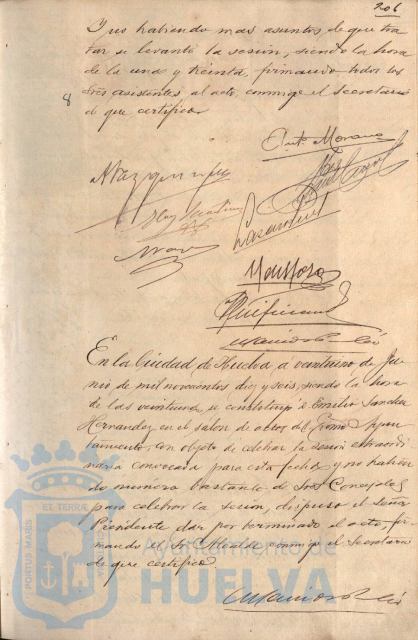 206
Y no habiendo mas asuntos de que tra
tar se levantó la sesión, siendo la hora
de la una y treinta, firmando todos los
Sres asistentes al acto, conmigo el Secretario
de que certifico
8
Antº Moreno
En la Ciudad de Huelva, á veintiuno de Ju
nio de mil novecientos diez y seis, siendo la hora
de las veintiuna, se constituyó D. Emilio Sanchez
Hernandez en el salon de actos del Excmo Ayun
tamiento, con objeto de celebrar la sesión extraordi
naria convocada para esta fecha, y no habien
do número bastante de Sres Concejales
para celebrar la sesión, dispuso el señor
Presidente dar por terminado el acto, fir
mando el Sr Alcalde conmigo el Secretario
de que certifico.
PORTUS MARIS
ET TERRÆ
Ayuntamiento de
HUELVA